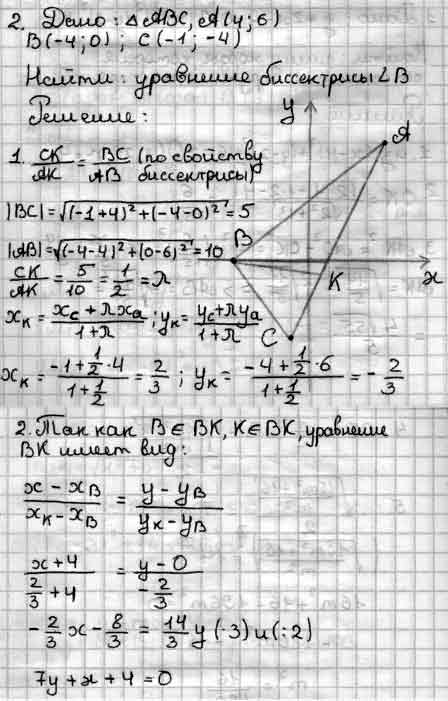 2. Дано: △ABC, A(4; 6)
B(-4; 0) ; C(-1; -4)
Найти: уравнение биссектрисы ∠B
Решение:
y
A
1. CK/AK = BC/AB (по свойству биссектрисы)
|BC| = √((-1+4)² + (-4-0)²) = 5
|AB| = √((-4-4)² + (0-6)²) = 10
B
CK/AK = 5/10 = 1/2 = λ
K
x
x_K = (x_C + λx_a)/(1+λ) ; y_K = (y_C + λy_a)/(1+λ)
C
x_K = (-1 + 1/2 · 4)/(1 + 1/2) = 2/3 ; y_K = (-4 + 1/2 · 6)/(1 + 1/2) = -2/3
2. Так как B ∈ BK, K ∈ BK, уравнение
BK имеет вид:
(x - x_B)/(x_K - x_B) = (y - y_B)/(y_K - y_B)
(x + 4)/(2/3 + 4) = (y - 0)/(-2/3)
-2/3 x - 8/3 = 14/3 y (·3) и (:2)
7y + x + 4 = 0